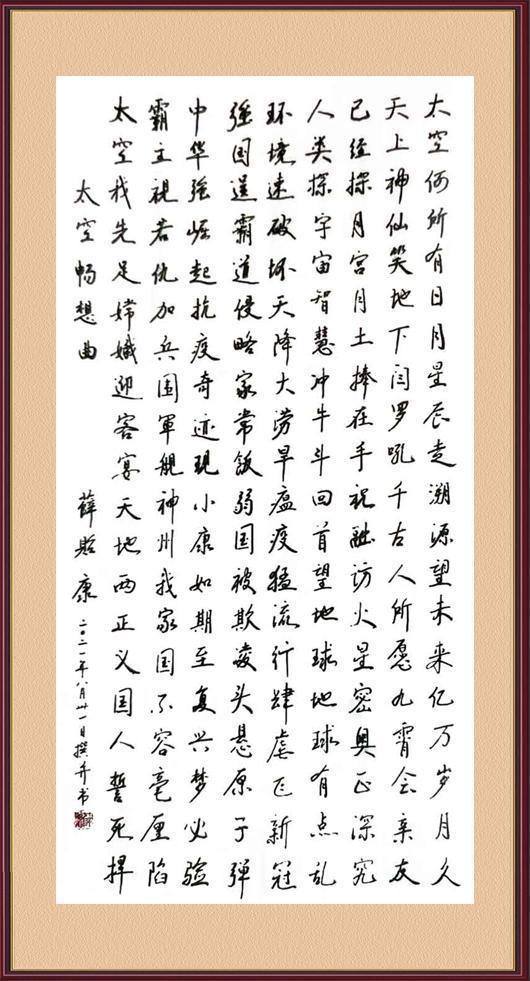 太空何所有日月星辰走溯源望未来亿万岁月久
天上神仙笑地下闫罗吼千古人所愿九霄会亲友
已经探月宫月土捧在手祝融访火星密奥正深究
人类探宇宙智慧冲牛斗回首望地球地球有点乱
环境速破坏天降大涝旱瘟疫猛流行肆虐正新冠
强国逞霸道侵略家常饭弱国被欺凌头悬原子弹
中华强崛起抗疫奇迹现小康如期至复兴梦必验
霸主视若仇加兵围軍舰神州我家国不容毫厘陷
太空我先足嫦娥迎客宴天地两正义国人誓死捍
太空畅想曲 薛贻康 二〇二一年八月卅一日撰并书